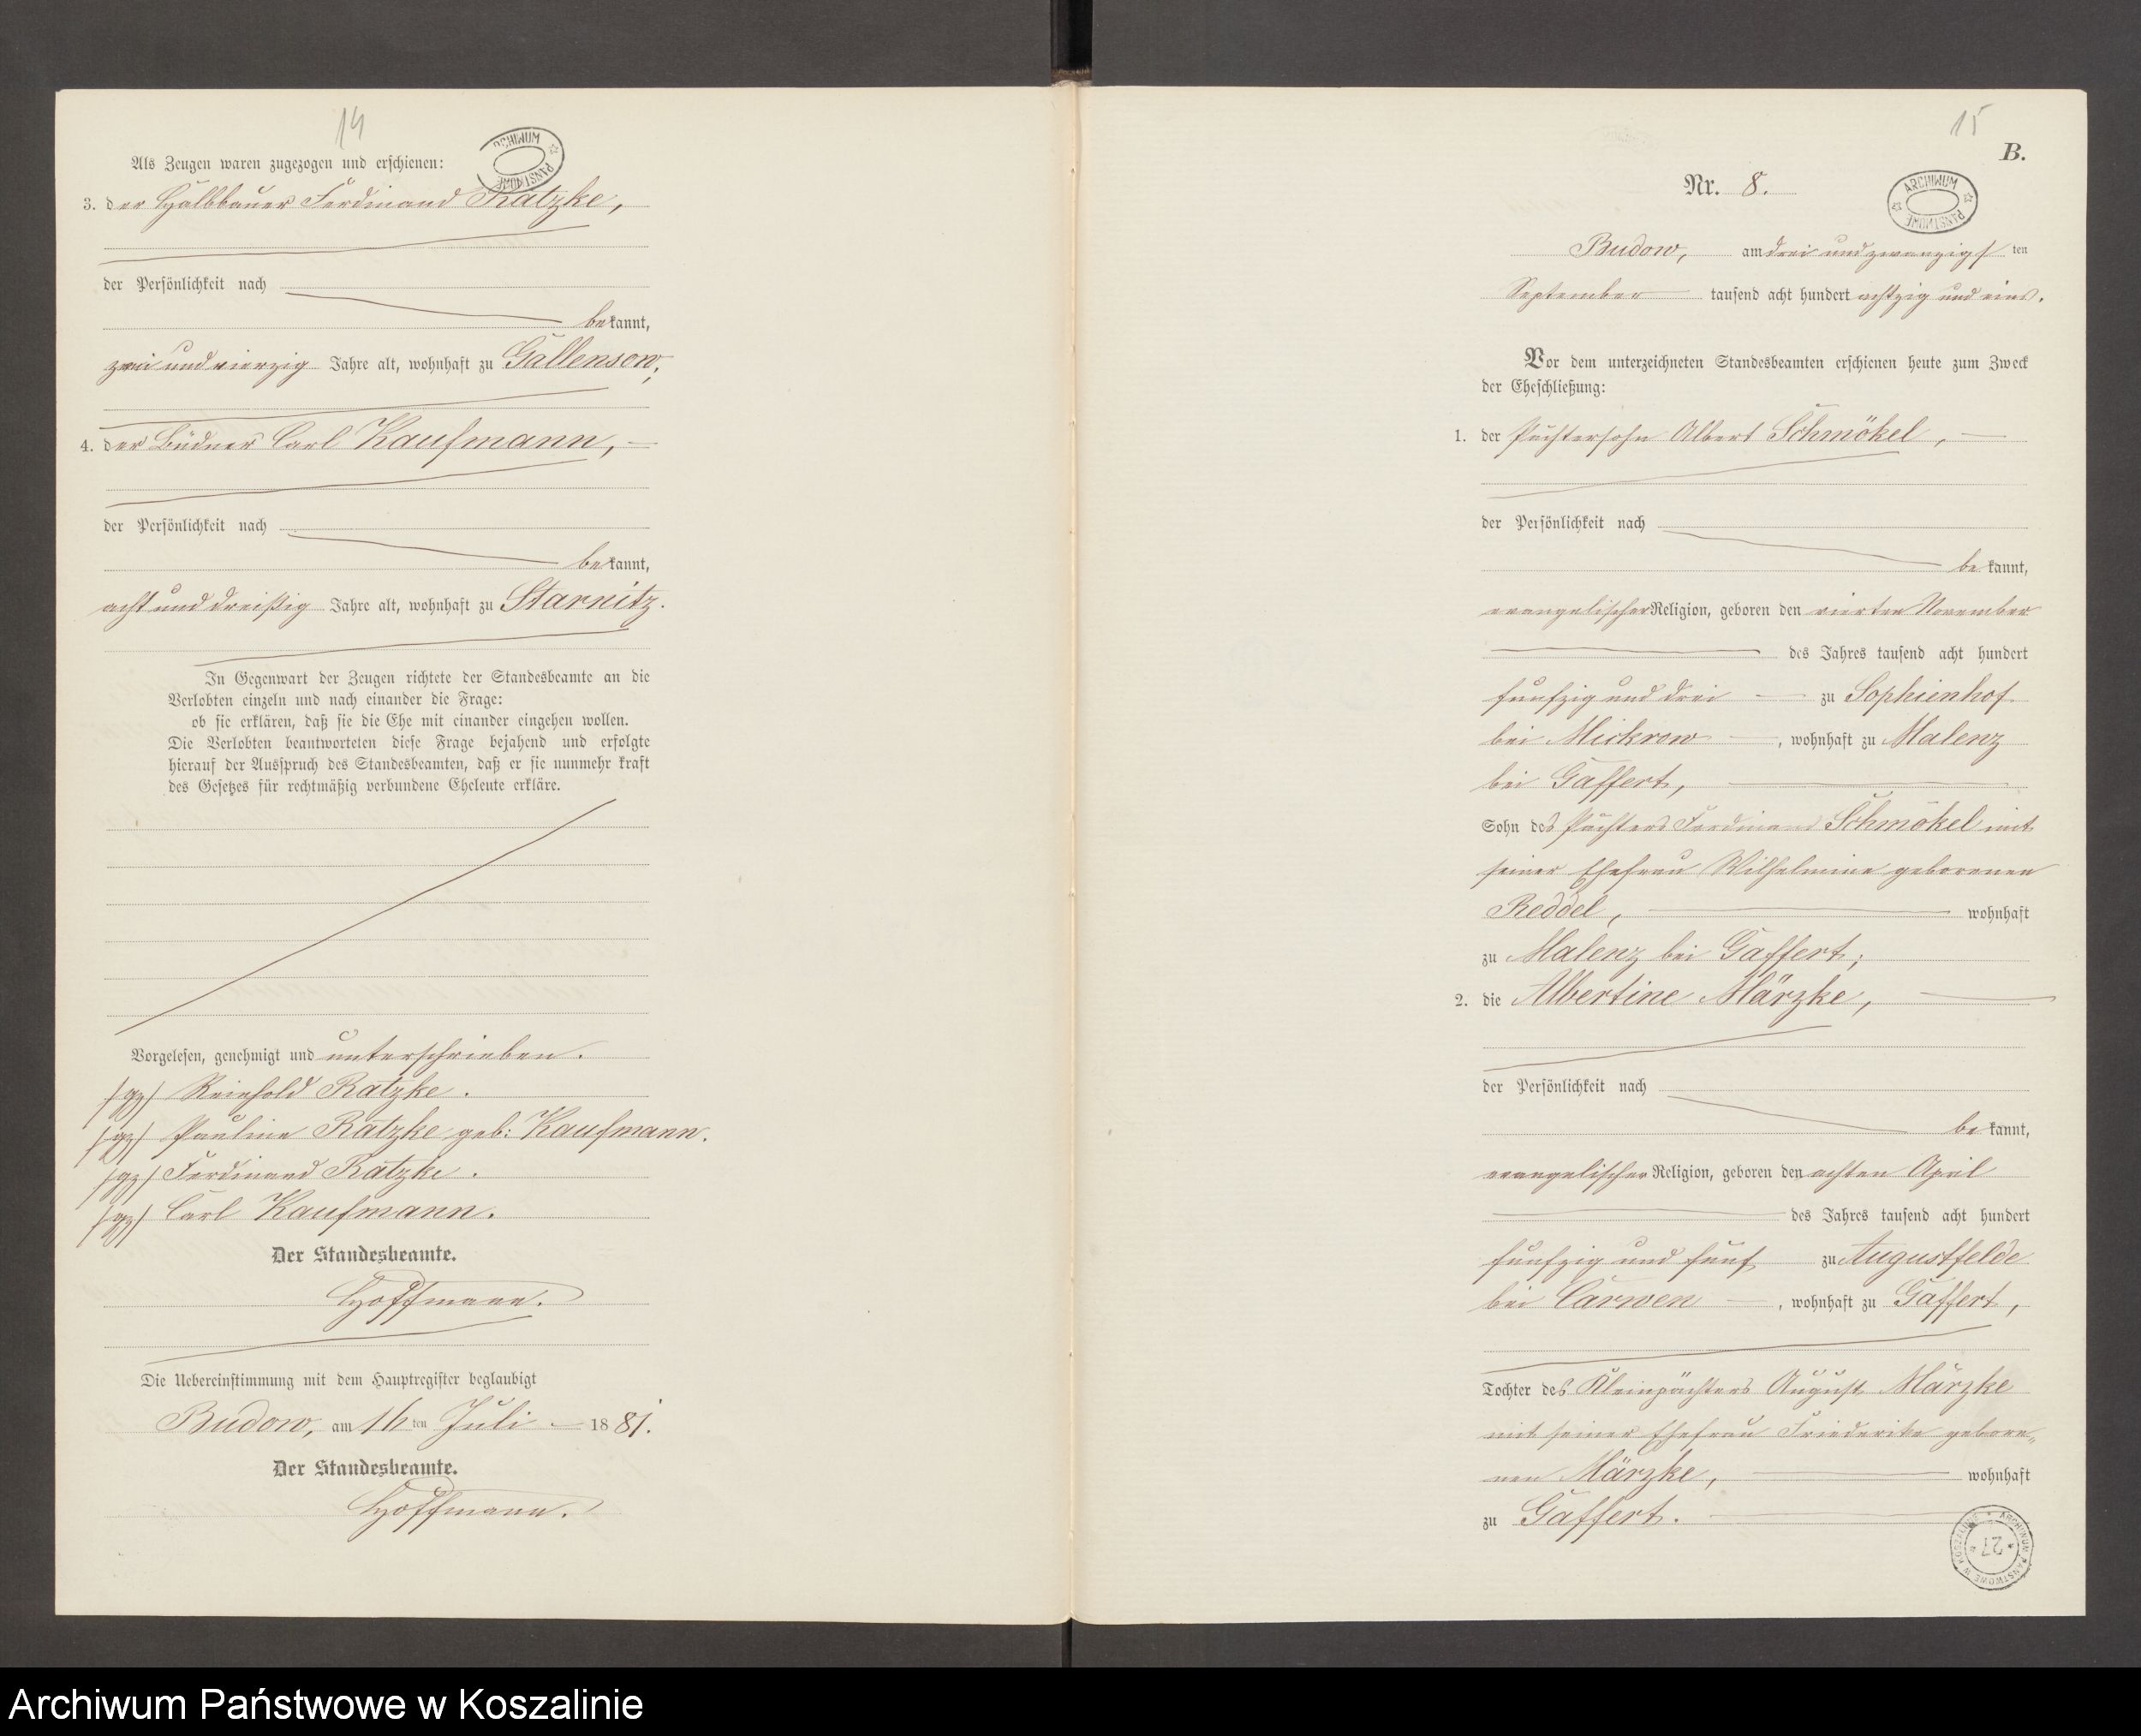 14
Als Zeugen waren zugezogen und erschienen:
ARCHIWUM PAŃSTWOWE
3. der Halbbauer Ferdinand Ratzke,
der Persönlichkeit nach
bekannt,
zwei und vierzig Jahre alt, wohnhaft zu Gallensow;
4. der Büdner Carl Kaufmann,
der Persönlichkeit nach
bekannt,
acht und dreißig Jahre alt, wohnhaft zu Starnitz.
In Gegenwart der Zeugen richtete der Standesbeamte an die
Verlobten einzeln und nach einander die Frage:
ob sie erklären, daß sie die Ehe mit einander eingehen wollen.
Die Verlobten beantworteten diese Frage bejahend und erfolgte
hierauf der Ausspruch des Standesbeamten, daß er sie nunmehr kraft
des Gesetzes für rechtmäßig verbundene Eheleute erkläre.
Vorgelesen, genehmigt und unterschrieben.
(gz) Reinhold Ratzke.
(gz) Pauline Ratzke geb: Kaufmann.
(gz) Ferdinand Ratzke.
(gz) Carl Kaufmann.
Der Standesbeamte.
Hoffmann.
Die Uebereinstimmung mit dem Hauptregister beglaubigt
Budow, am 16ten Juli 1881.
Der Standesbeamte.
Hoffmann.
15
B.
Nr. 8.
ARCHIWUM PAŃSTWOWE
Budow, am drei und zwanzigsten
September tausend acht hundert achtzig und eins.
Vor dem unterzeichneten Standesbeamten erschienen heute zum Zweck
der Eheschließung:
1. der Pächtersohn Albert Schmökel,
der Persönlichkeit nach
bekannt,
evangelischer Religion, geboren den vierten November
des Jahres tausend acht hundert
funfzig und drei zu Sophienhof
bei Mickrow, wohnhaft zu Malenz
bei Gaffert,
Sohn des Pächters Ferdinand Schmökel mit
seiner Ehefrau Wilhelmine geborenen
Reddel, wohnhaft
zu Malenz bei Gaffert;
2. die Albertine Märzke,
der Persönlichkeit nach
bekannt,
evangelischer Religion, geboren den achten April
des Jahres tausend acht hundert
funfzig und fünf zu Augustfelde
bei Carwen, wohnhaft zu Gaffert,
Tochter des Kleinpächters August Märzke
mit seiner Ehefrau Friederike gebore-
nen Märzke, wohnhaft
zu Gaffert.
ARCHIWUM PAŃSTWOWE W KOSZALINIE
27
Archiwum Państwowe w Koszalinie